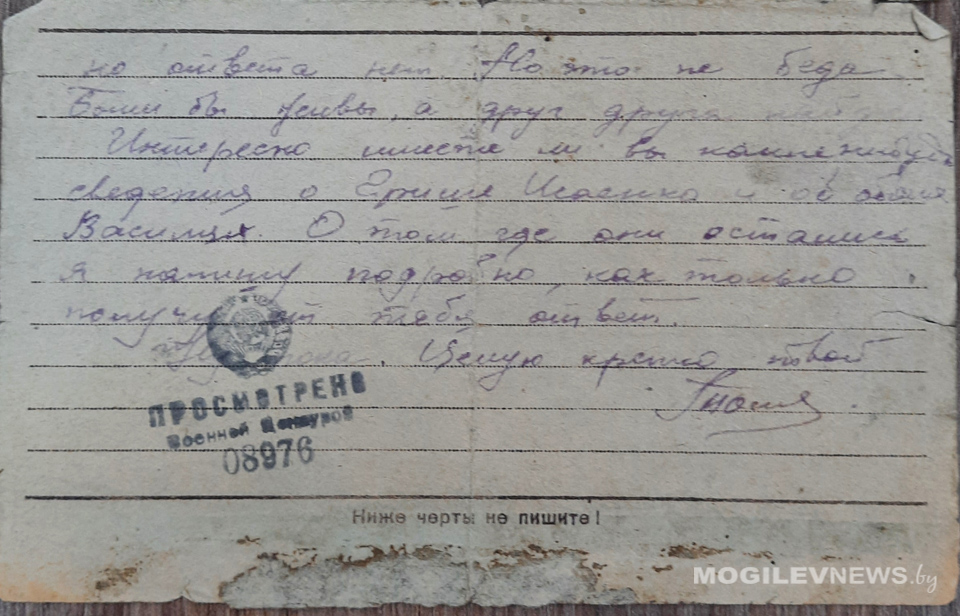 но ответа нет. Но это не беда
Были бы живы, а друг друга
Интересно имеете ли вы какие нибудь
сведения о Грише Исаенко и об
Васильцах. О том где они остались
я напишу подробно, как только
получу от тебя ответ.
Ну пока. Целую крепко твой
ПРОСМОТРЕНО
Военной Цензурой
08976
Ниже черты не пишите!
MOGILEVNEWS.by